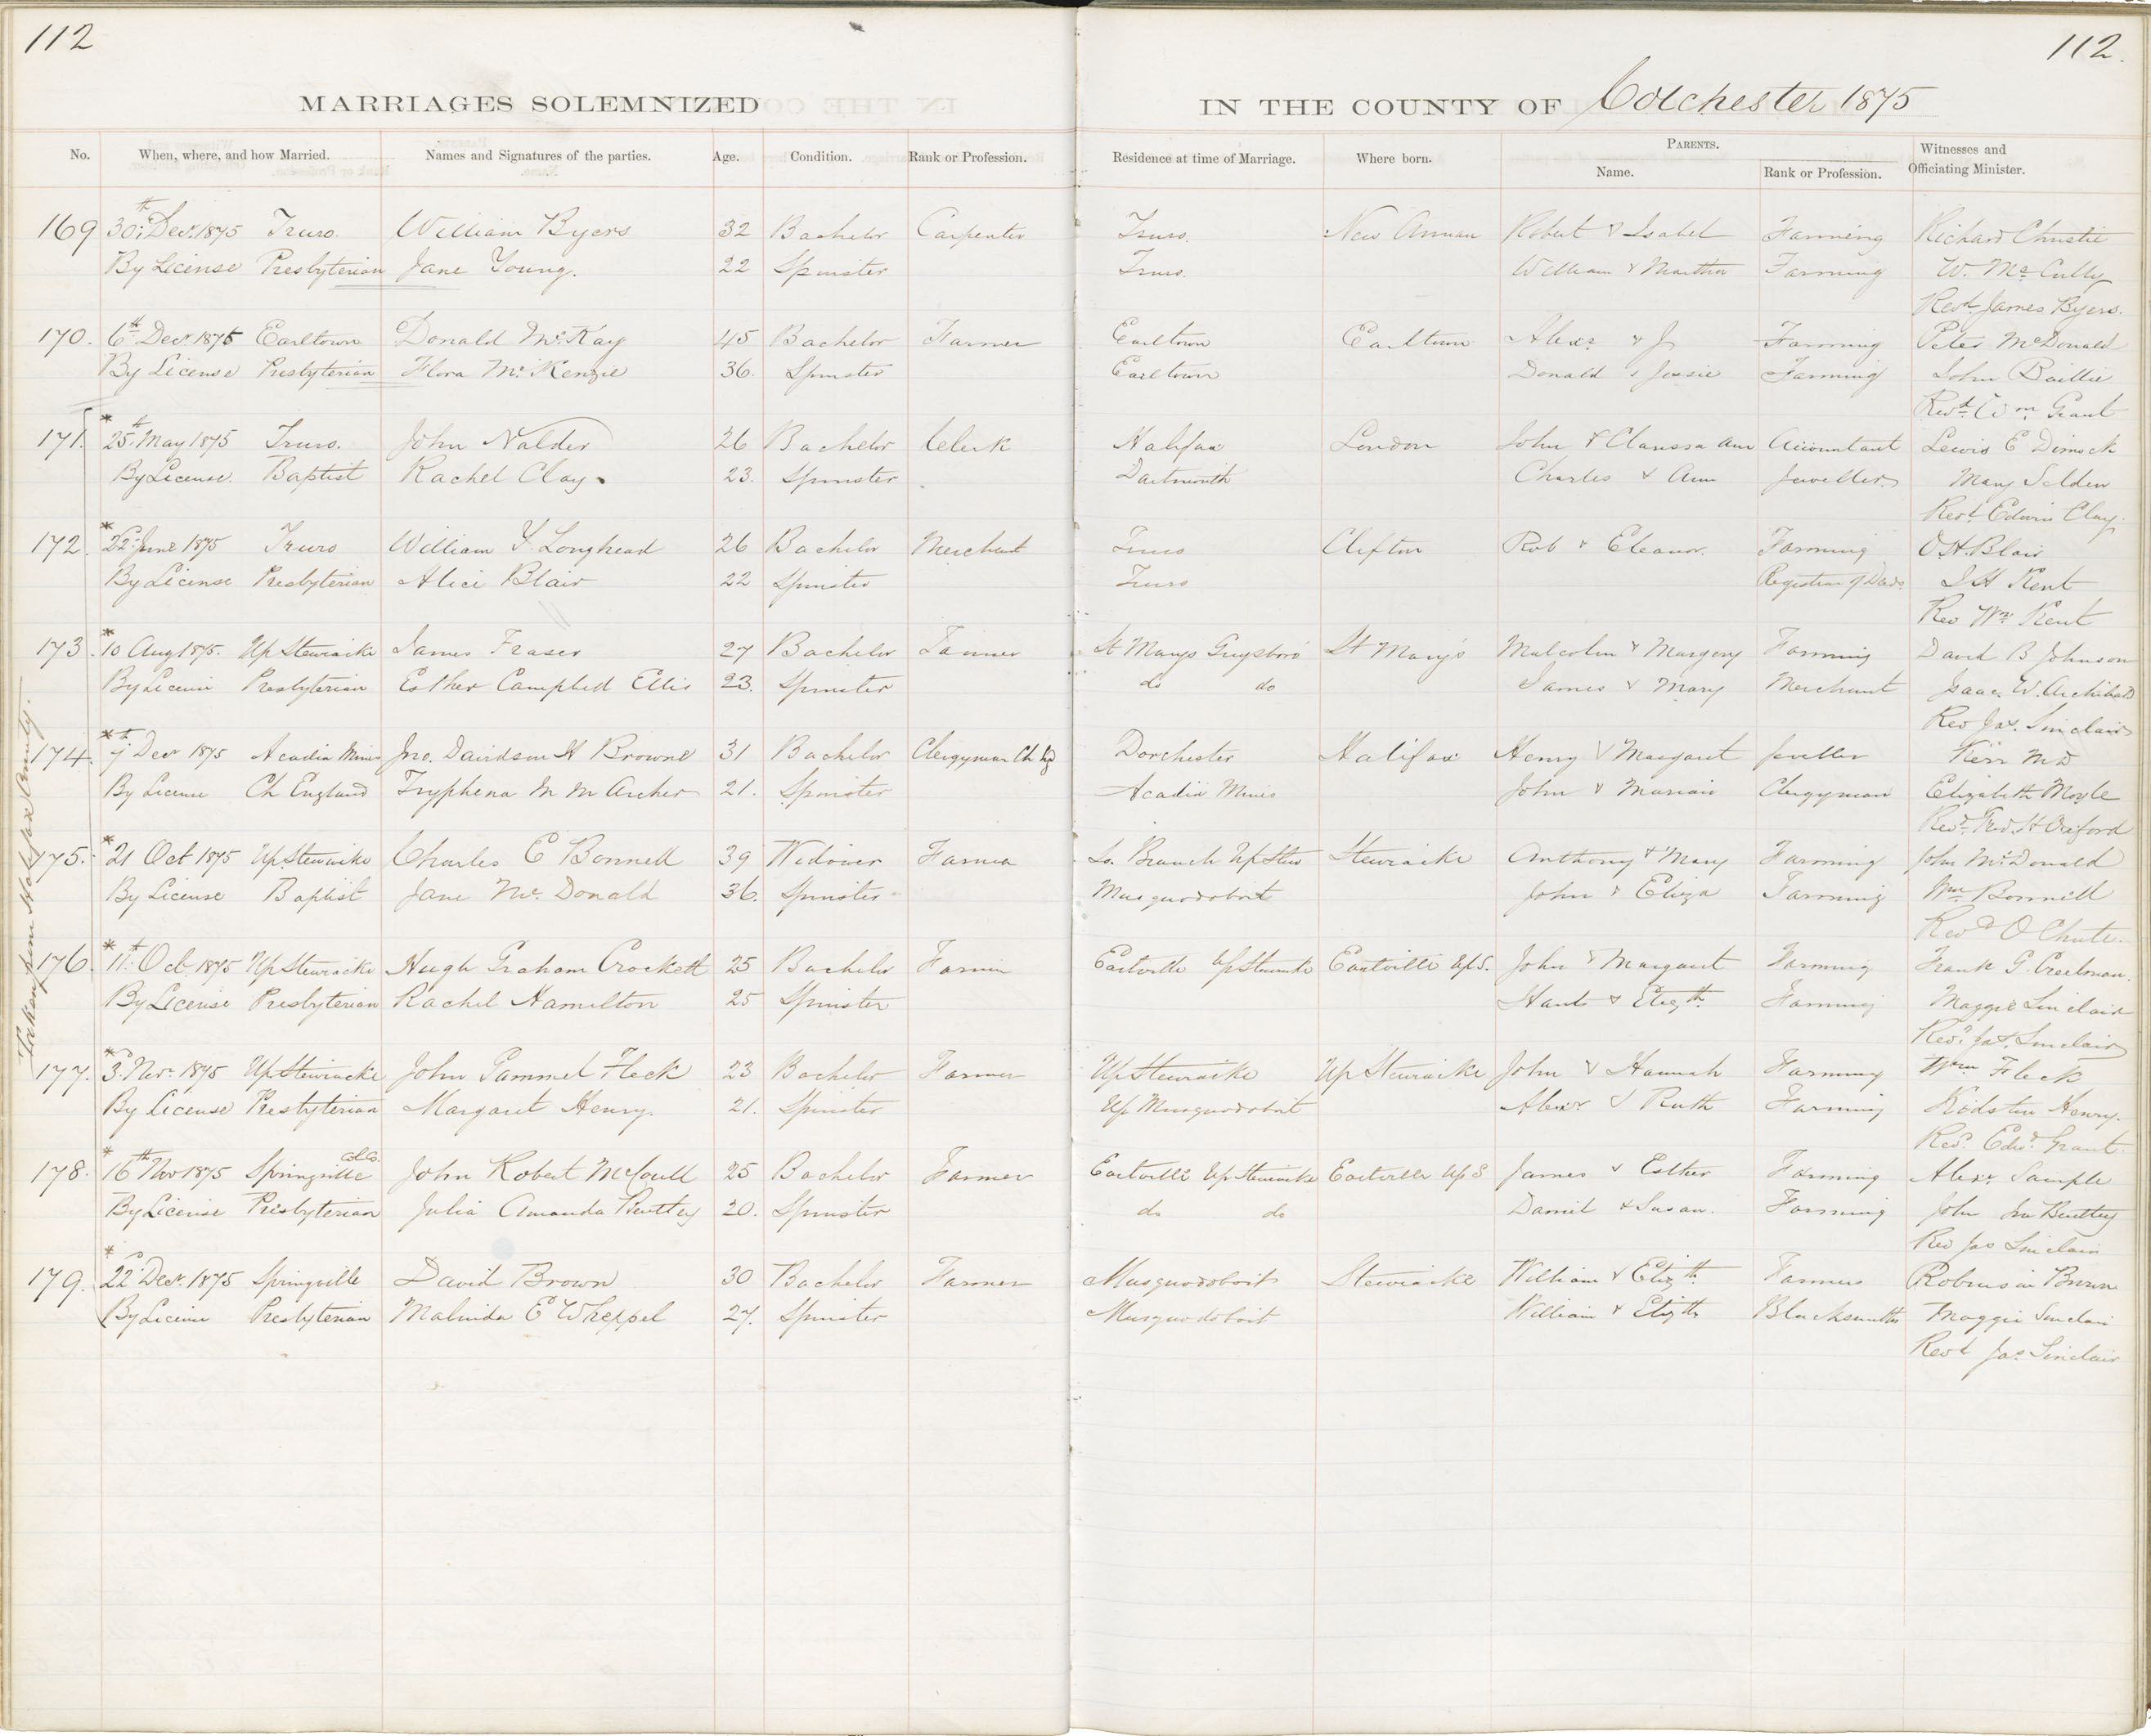 112
112.
MARRIAGES SOLEMNIZED IN THE COUNTY OF Colchester 1875
No. When, where, and how Married. Names and Signatures of the parties. Age. Condition. Rank or Profession. Residence at time of Marriage. Where born. PARENTS. Witnesses and
Name. Rank or Profession. Officiating Minister.
169 30th Decr. 1875 Truro. William Byers 32 Bachelor Carpenter Truro. New Annan Robert & Isabel Farming Richard Christie
By License Presbyterian Jane Young. 22 Spinster Truro. William & Martha Farming W. McCully
Revd. James Byers.
170. 6th Decr. 1875 Earltown Donald McKay 45 Bachelor Farmer Earltown Earltown Alexr & J Farming Peter McDonald
By License Presbyterian Flora McKenzie 36. Spinster Earltown Donald & Jessie Farming John Baillie
Revd. Wm Grant
171. * 25th May 1875 Truro. John Nalder 26 Bachelor Clerk Halifax London John & Clarissa Ann Accountant Lewis E Dimock
By License. Baptist Rachel Clay. 23. Spinster Dartmouth Charles & Ann Jeweller Mary Selden
Revd. Edwin Clay.
172. * 22d June 1875 Truro William Y. Longhead 26 Bachelor Merchant Truro Clifton Rob & Eleanor. Farming O.H. Blair
By License Presbyterian Alice Blair 22 Spinster Truro Registrar of Deeds. I H Kent
Rev Wm Kent
173. * 10 Aug 1875. Up Stewiacke James Fraser 27 Bachelor Tanner St Marys Guysboro St Mary's Malcolm & Margery Farming David B Johnson
By License Presbyterian Esther Campbell Ellis 23. Spinster do do James & Mary Merchant Isaac W. Archibald
Rev Jas. Sinclair
174. * 7th Decr 1875 Acadia Mines Jno. Davidson H Browne 31 Bachelor Clergyman Ch Eng Dorchester Halifax Henry & Margaret Jeweller Kerr MD
By License Ch England Tryphena M M Archer 21. Spinster Acadia Mines John & Marian Clergyman Elizabeth Moyle
Revd. Geo. H Oxford
175. * 21 Oct 1875 Up Stewiacke Charles E Bonnell 39 Widower Farmer So. Branch Up Stew Stewiacke Anthony & Mary Farming John McDonald
By License Baptist Jane McDonald 36. Spinster Musquodoboit John & Eliza Farming Wm Bonnell
Revd O Chute.
176. * 11th Oct. 1875 Up Stewiacke Hugh Graham Crockett 25 Bachelor Farmer Eastville Up Stewiacke Eastville Up S. John & Margaret Farming Frank G. Creelman.
By License Presbyterian Rachel Hamilton 25 Spinster & Elizth. Farming Maggie Sinclair
Revd. Jas. Sinclair
177. * 3d Novr. 1875 Up Stewiacke John Gammel Fleck 23 Bachelor Farmer Up Stewiacke Up Stewiacke John & Hannah Farming Wm Fleck
By License Presbyterian Margaret Henry. 21. Spinster Up Musquodoboit Alexr & Ruth Farming Kidston Henry.
Revd. Edwd. Grant.
Col. Co.
178. * 16th Nov 1875 Springville John Robert 25 Bachelor Farmer Eastville Up Stewiacke Eastville Up S James & Esther Farming Alexr Sample
By License Presbyterian Julia Amanda Bentley 20. Spinster do do Daniel & Susan. Farming John Bentley
Rev Jas Sinclair
179. * 22d Decr. 1875 Springville David Brown 30 Bachelor Farmer Musquodoboit Stewiacke William & Elizth Farmers Robinson Brown
By License Presbyterian Malinda E Wheppel 27. Spinster Musquodoboit William & Elizth Blacksmith Maggie Sinclair
Revd Jas. Sinclair
Taken from Halifax County.